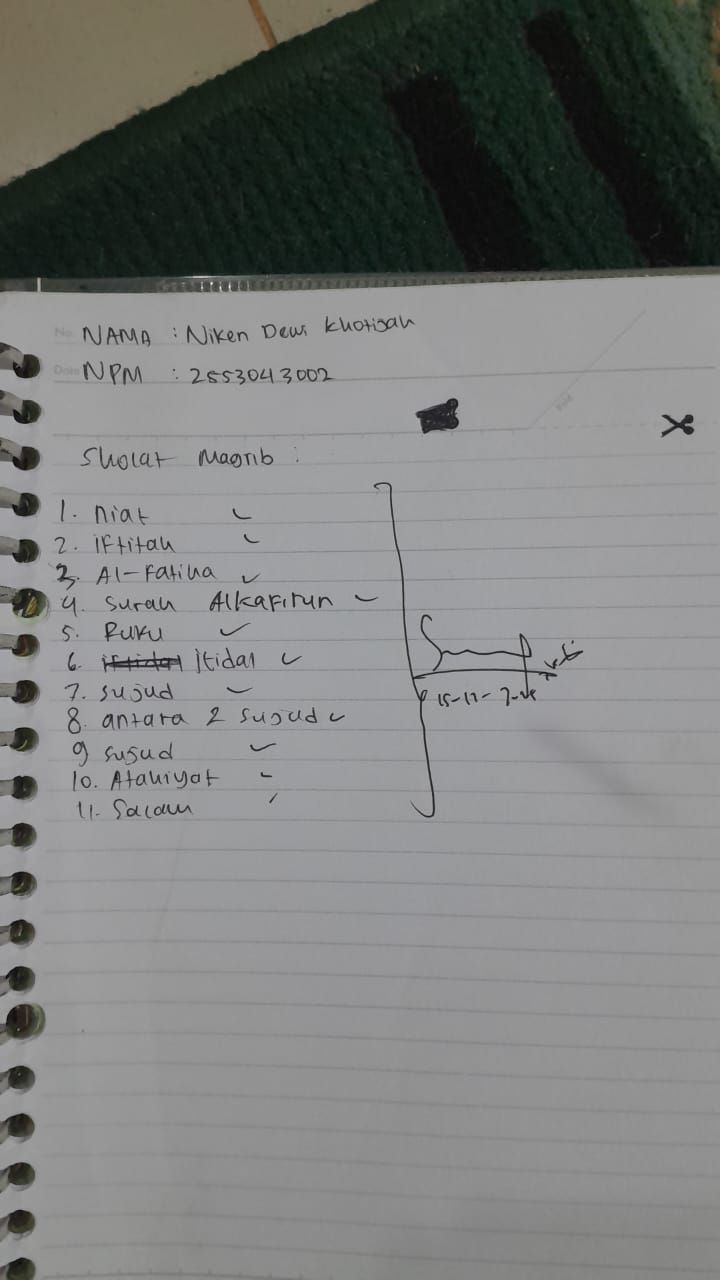 No. NAMA : Niken Dewi Khotijah
Date NPM : 2553043002
Sholat Magrib :
1. niat
2. iftitah
3. Al-fatiha
4. surah Alkafirun
5. Ruku
6. Itidal
7. sujud
8. antara 2 sujud
9 sujud
10. Atahiyat
11. Salam